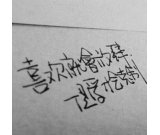 喜欢就会放肆
但爱是克制